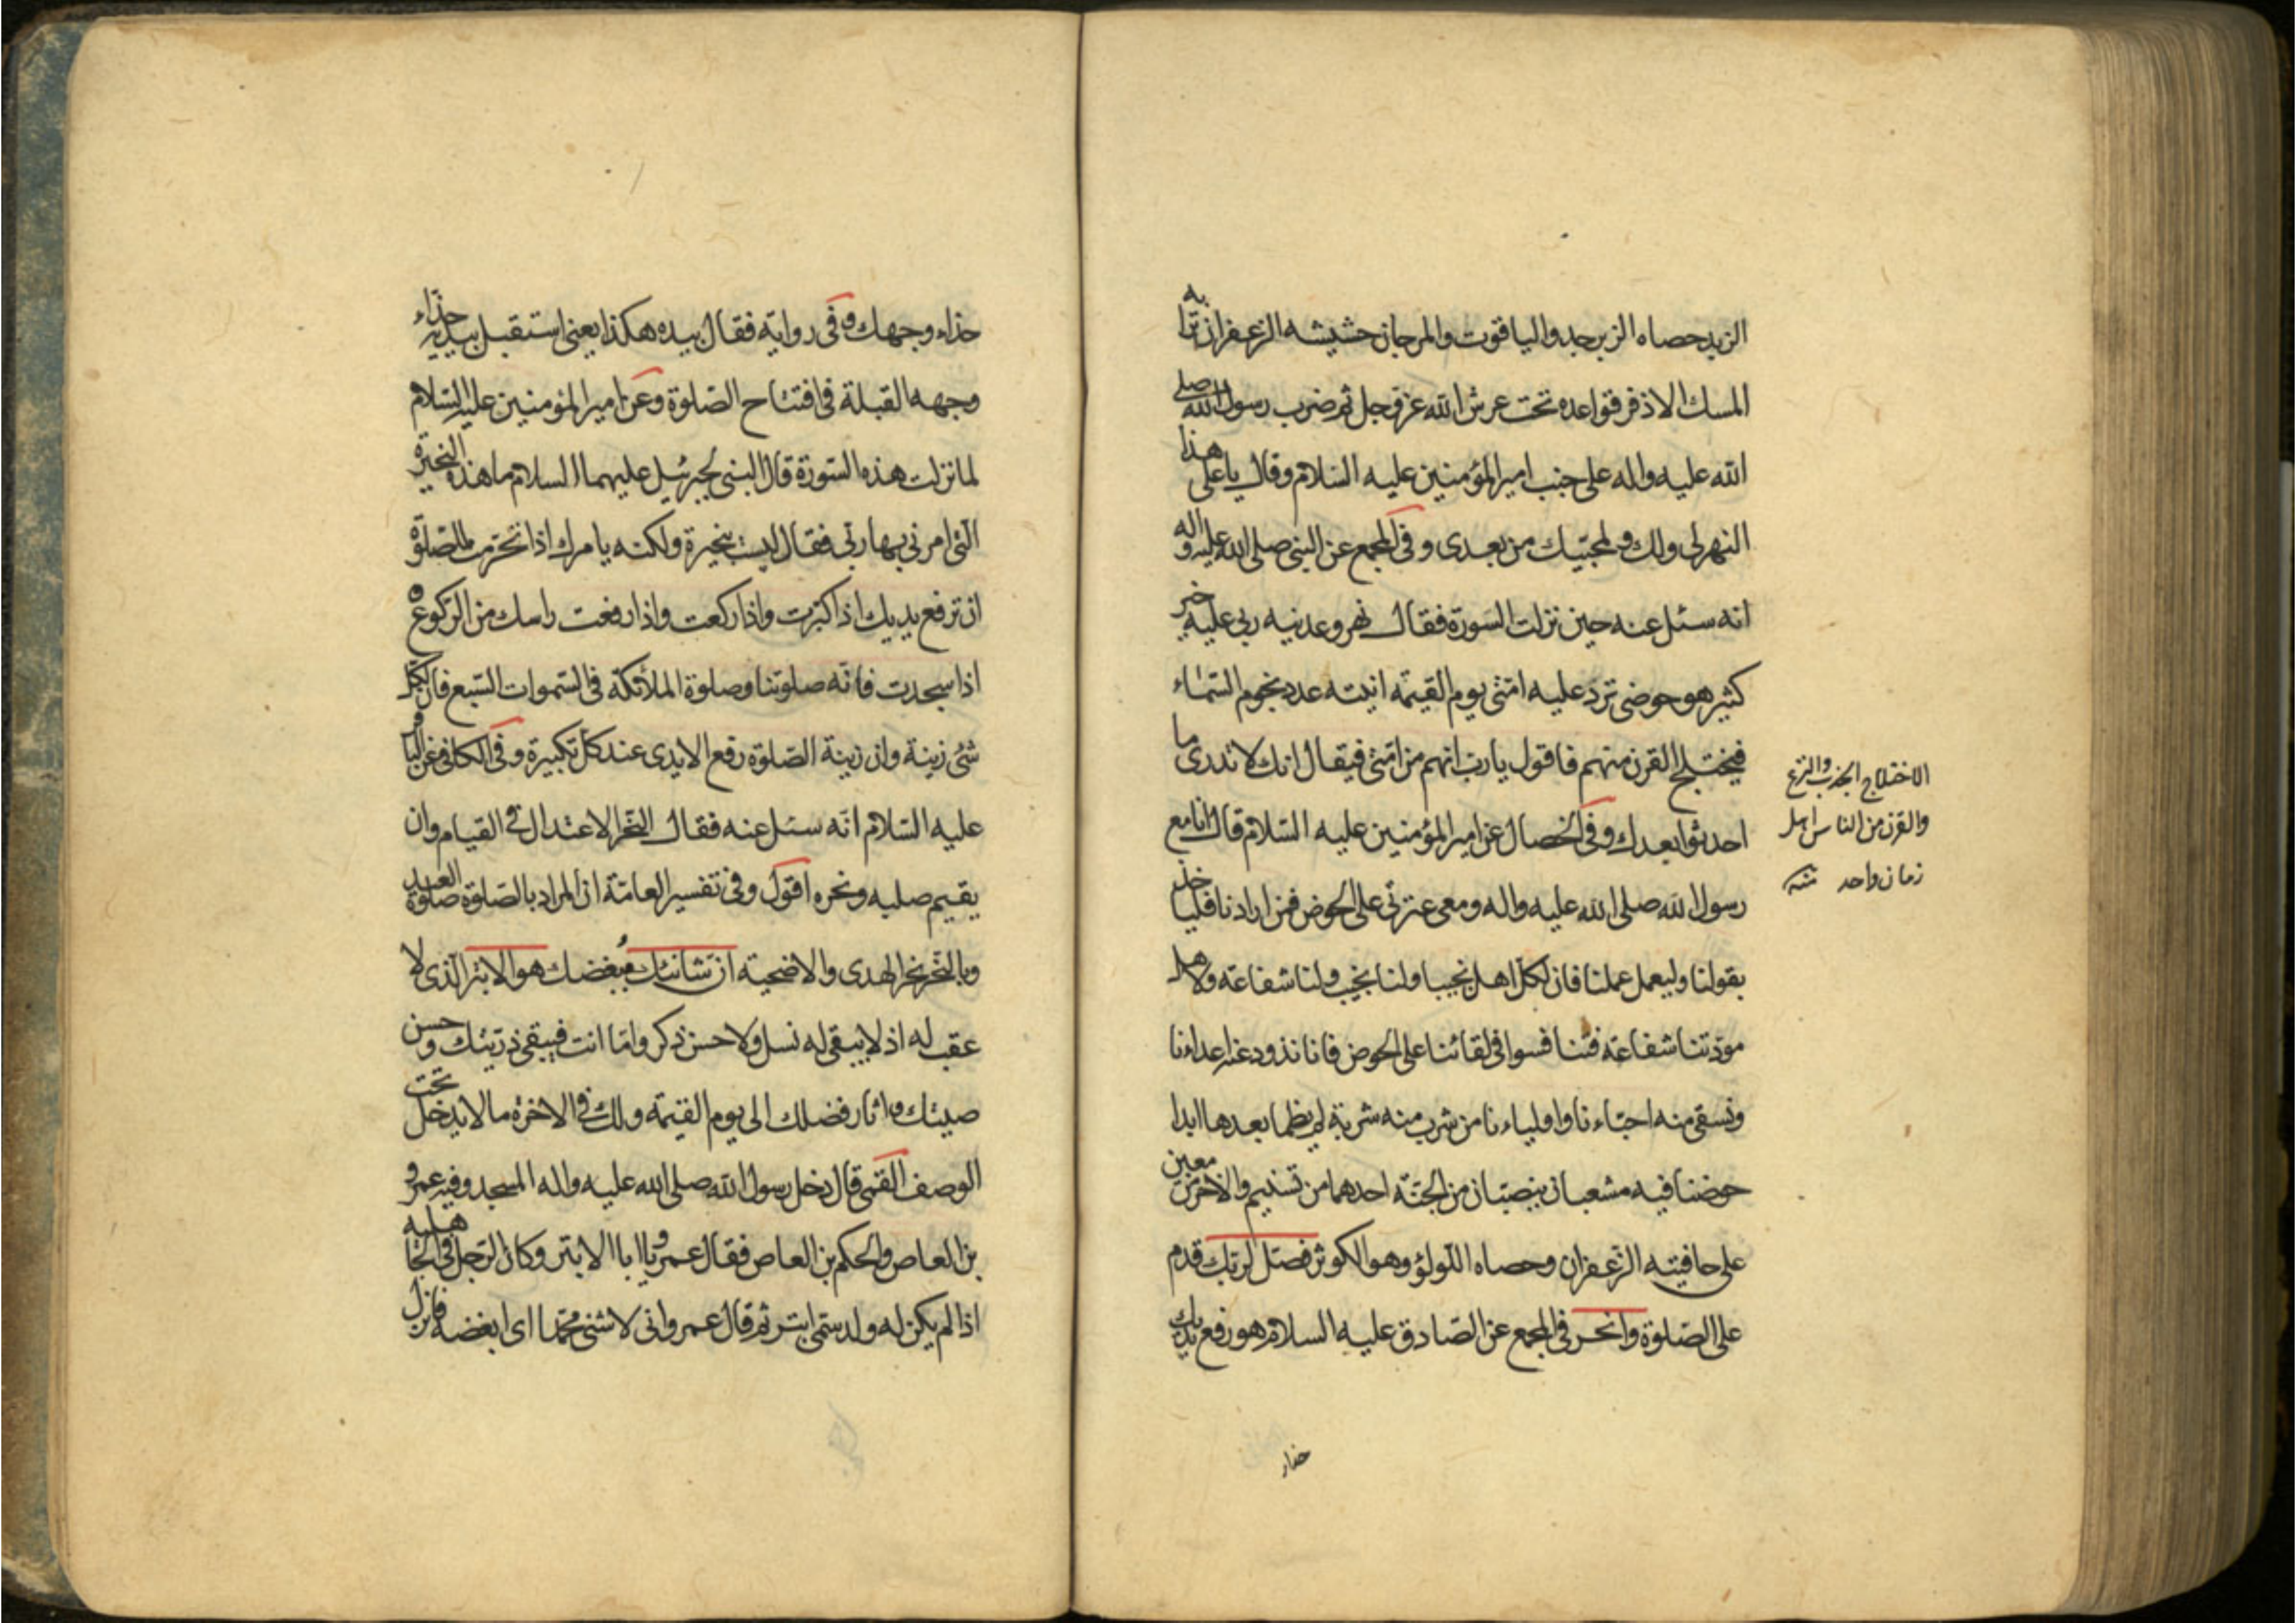 الزبد حصاه الزبرجد والياقوت والمرجان حشيشه الزعفران ترابه
المسك الاذفر قواعده تحت عرش الله عز وجل ثم ضرب رسول الله صلى
الله عليه واله على جنب امير المؤمنين عليه السلام وقال يا على هذا
النهر لى ولك ولمحبيك من بعدى وفى المجمع عن النبى صلى الله عليه واله
انه سئل عنه حين نزلت السورة فقال نهر وعدنيه ربى عليه خير
كثير هو حوضى ترد عليه امتى يوم القيمة انيته عدد نجوم السماء
فيختلج القرن منهم فاقول يا رب انهم من امتى فيقال انك لا تدرى ما
احدثوا بعدك وفى الخصال عن امير المؤمنين عليه السلام قال انا مع
رسول الله صلى الله عليه واله ومعى عترتى على الحوض فمن ارادنا فلياخذ
بقولنا وليعمل عملنا فان لكل اهل نجيبا ولنا نجيب ولنا شفاعة ولاهل
مودتنا شفاعة فتنافسوا فى لقائنا على الحوض فانا نذود عنه اعداءنا
ونسقى منه احباءنا واولياءنا من شرب منه شربة لم يظما بعدها ابدا
حوضنا فيه مشعبان ينصبان من الجنة احدهما من تسنيم والاخر من معين
على حافيته الزعفران وحصاه اللولؤ وهو الكوثر فصل لربك قدم
على الصلوة وانحر فى المجمع عن الصادق عليه السلام هو رفع يديك
الاختلاج الجذب والنزع
والقرن من الناس اهل
زمان واحد منه
حذاء وجهك وفى رواية فقال بيده هكذا يعنى استقبل بيديه حذاء
وجهه القبلة فى افتتاح الصلوة وعن امير المؤمنين عليه السلام
لما نزلت هذه السورة قال النبى لجبرئيل عليهما السلام ما هذه النحيرة
التى امرنى بها ربى فقال ليست بنحيرة ولكنه يامرك اذا تحرمت للصلوة
ان ترفع يديك اذا كبرت واذا ركعت واذا رفعت راسك من الركوع و
اذا سجدت فانه صلوتنا وصلوة الملائكة فى السموات السبع فان لكل
شئ زينة وان زينة الصلوة رفع الايدى عند كل تكبيرة وفى الكافى عن الباقر
عليه السلام انه سئل عنه فقال النحر الاعتدال فى القيام وان
يقيم صلبه ونحره اقول وفى تفسير العامة ان المراد بالصلوة صلوة العيد
وبالنحر نحر الهدى والاضحية ان شانئك مبغضك هو الابتر الذى لا
عقب له اذ لا يبقى له نسل ولا حسن ذكر واما انت فيبقى ذريتك وحسن
صيتك واثار فضلك الى يوم القيمة ولك فى الاخرة ما لا يدخل تحت
الوصف القمى قال دخل رسول الله صلى الله عليه واله المسجد وفيه عمرو
بن العاص والحكم بن العاص فقال عمرو يا ابا الابتر وكان الرجل فى الجاهلية
اذا لم يكن له ولد سمى ابتر ثم قال عمرو انى لاشنى محمدا اى ابغضه فانزل